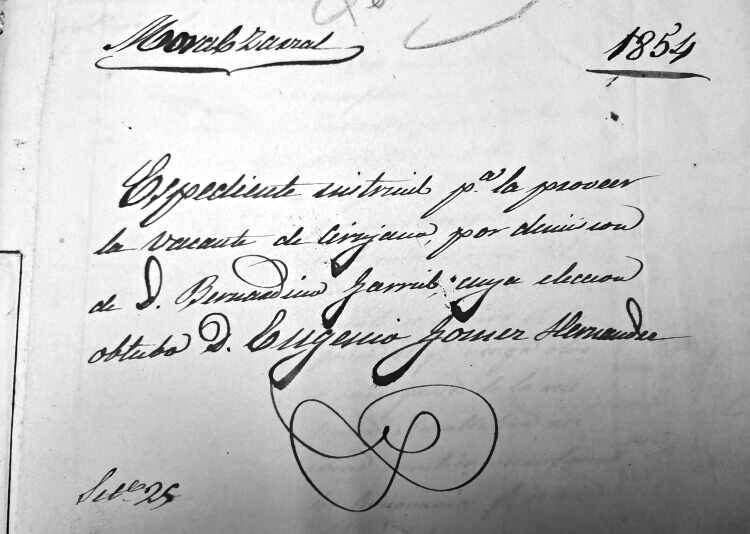 Moralzarzal 1854
Espediente instruid pª la proveer
la vacante de Cirujano, por dimision
de D. Bernardino Garrid, cuya eleccion
obtubo D. Eugenio Gomez Hernandez
25